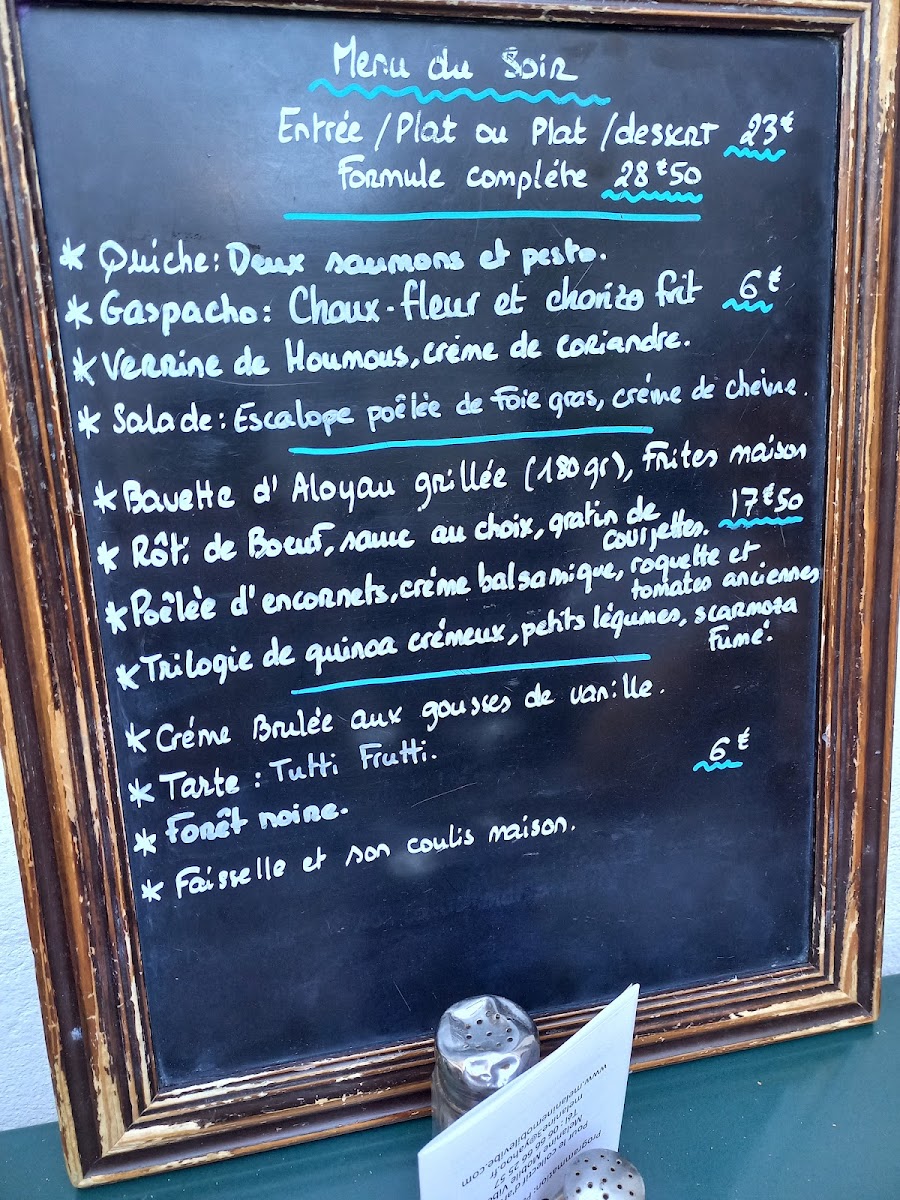 Menu du Soir
Entrée / Plat ou Plat / dessert 23€
Formule compléte 28€50
* Quiche: Deux saumons et pesto.
* Gaspacho: Choux-fleur et chorizo frit 6€
* Verrine de Houmous, créme de coriandre.
* Salade: Escalope poêlée de Foie gras, créme de chèvre.
* Bavette d'Aloyau grillée (180gr), Frites maison
17€50
* Rôti de Boeuf, sauce au choix, gratin de
courjettes.
* Poêlèe d'encornets, créme balsamique, roquette et
tomates anciennes
* Trilogie de quinoa crémeux, petits légumes, scarmoza
Fumé.
* Créme Brulée aux gousses de vanille.
* Tarte: Tutti Frutti.
6€
* Forêt noire.
* Faisselle et son coulis maison.
Pour le collectif
Mélanine Mobile Vibe
Tél: 06 66 25 57
melanine3@yahoo.fr
www.melaninemobilevibe.com